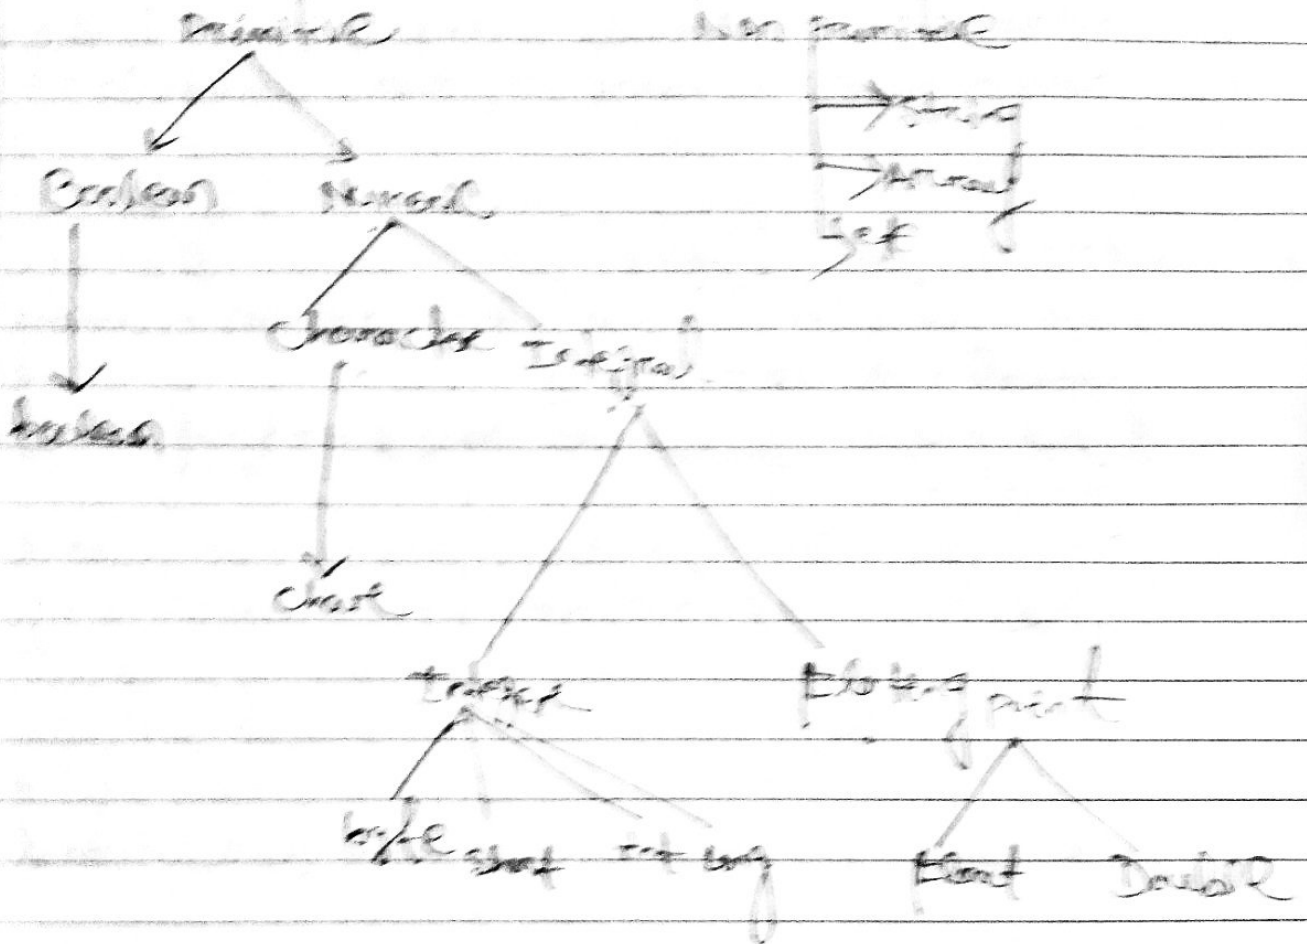 Primitive Non Primitive
String
Boolean Numeric Array
etc
Character Integral
boolean
Char
Integer Floating point
byte short int long Float Double